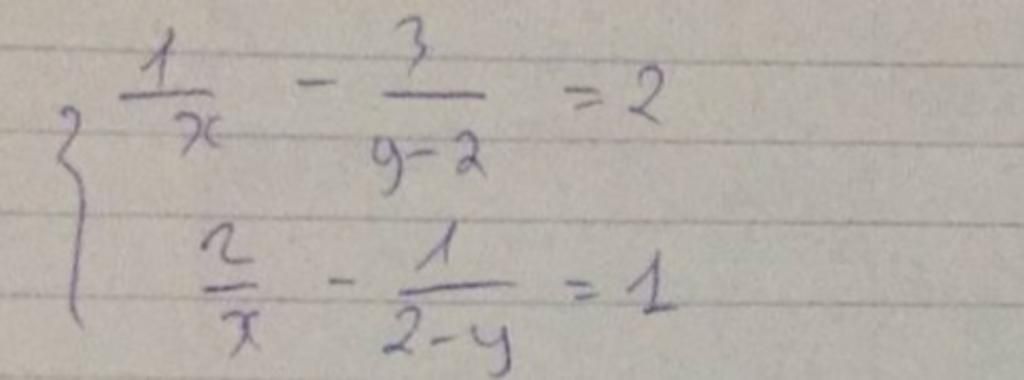 { 1/x - 3/(y-2) = 2
2/x - 1/(2-y) = 1